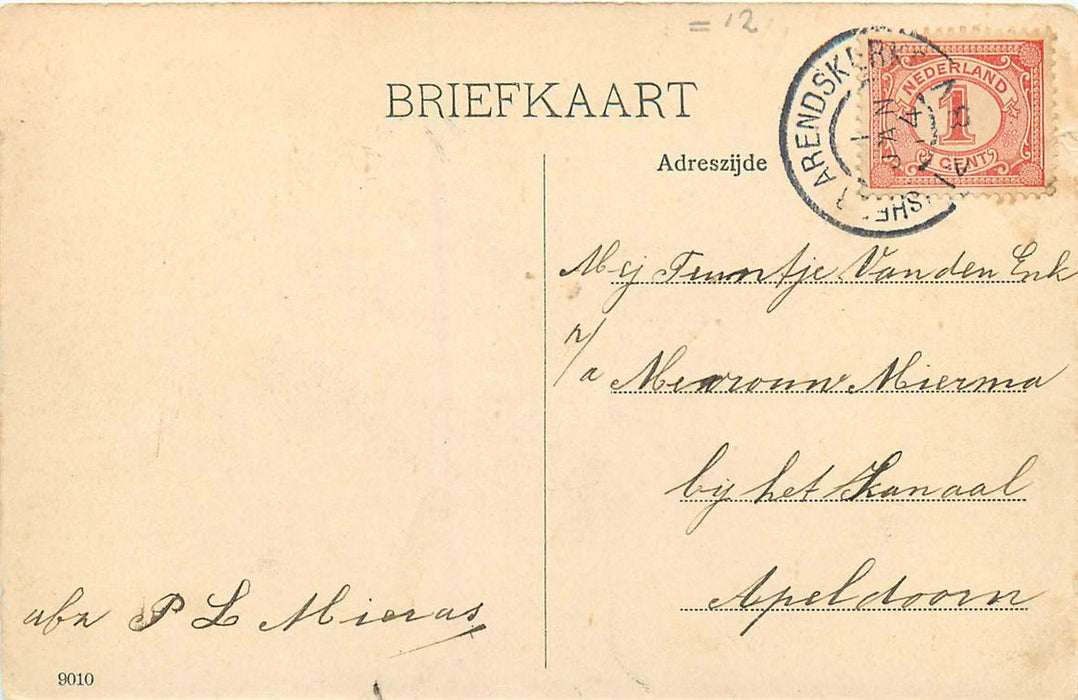 = 12
BRIEFKAART
Adreszijde
ARENDSKERKE
1 JAN
NEDERLAND
1
CENT
Mej Teuntje Van den Enk
Mierma
bij het Kanaal
Apeldoorn
P L Mieras
9010